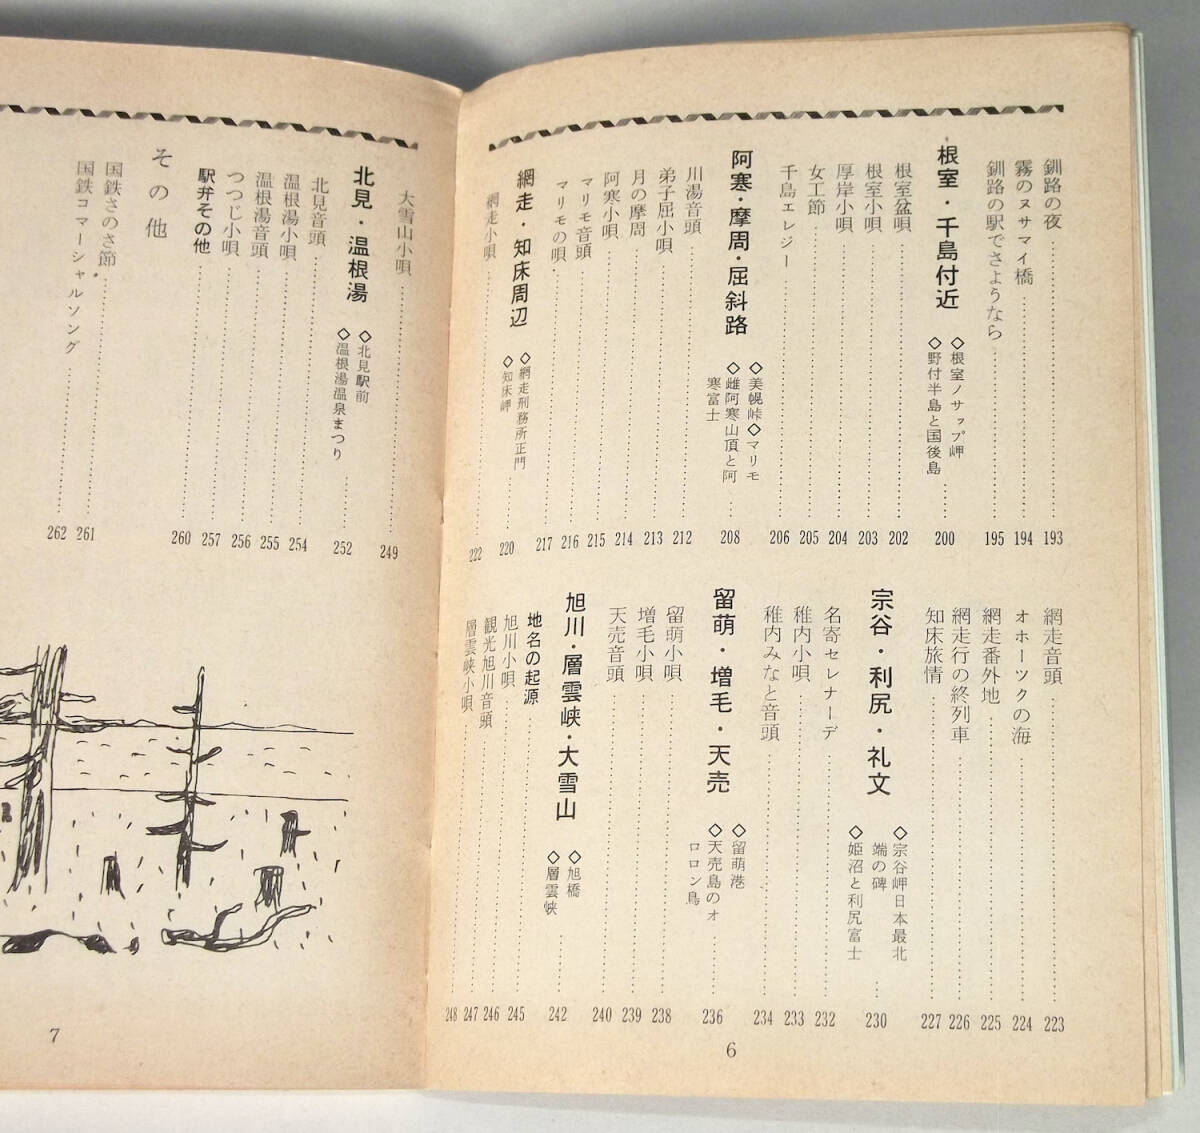 釧路の夜 193
霧のヌサマイ橋 194
釧路の駅でさようなら 195
根室・千島付近 ◇根室ノサップ岬 ◇野付半島と国後島 200
根室盆唄 202
根室小唄 203
厚岸小唄 204
女工節 205
千島エレジー 206
阿寒・摩周・屈斜路 ◇美幌峠◇マリモ ◇雌阿寒山頂と阿寒富士 208
川湯音頭 212
弟子屈小唄 213
月の摩周 214
阿寒小唄 215
マリモ音頭 216
マリモの唄 217
網走・知床周辺 ◇網走刑務所正門 ◇知床岬 220
網走小唄 222
網走音頭 223
オホーツクの海 224
網走番外地 225
網走行の終列車 226
知床旅情 227
宗谷・利尻・礼文 ◇宗谷岬日本最北端の碑 ◇姫沼と利尻富士 230
名寄セレナーデ 232
稚内小唄 233
稚内みなと音頭 234
留萌・増毛・天売 ◇留萌港 ◇天売島のオロロン鳥 236
留萌小唄 238
増毛小唄 239
天売音頭 240
旭川・層雲峡・大雪山 ◇旭橋 ◇層雲峡 242
地名の起源 245
旭川小唄 246
観光旭川音頭 247
層雲峡小唄 248
6
大雪山小唄 249
北見・温根湯 ◇北見駅前 ◇温根湯温泉まつり 252
北見音頭 254
温根湯小唄 255
温根湯音頭 256
つつじ小唄 257
駅弁その他 260
その他
国鉄さのさ節 261
国鉄コマーシャルソング 262
7